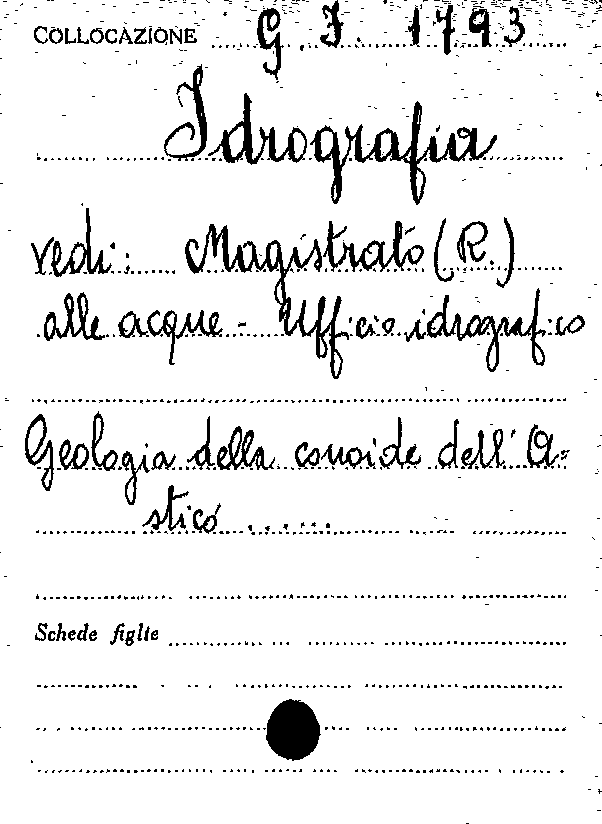 COLLOCAZIONE G. I. 1793
Idrografia
vedi: Magistrato (R.)
alle acque - Ufficio idrografico
Geologia della conoide dell'A=
stico ......
Schede figlie